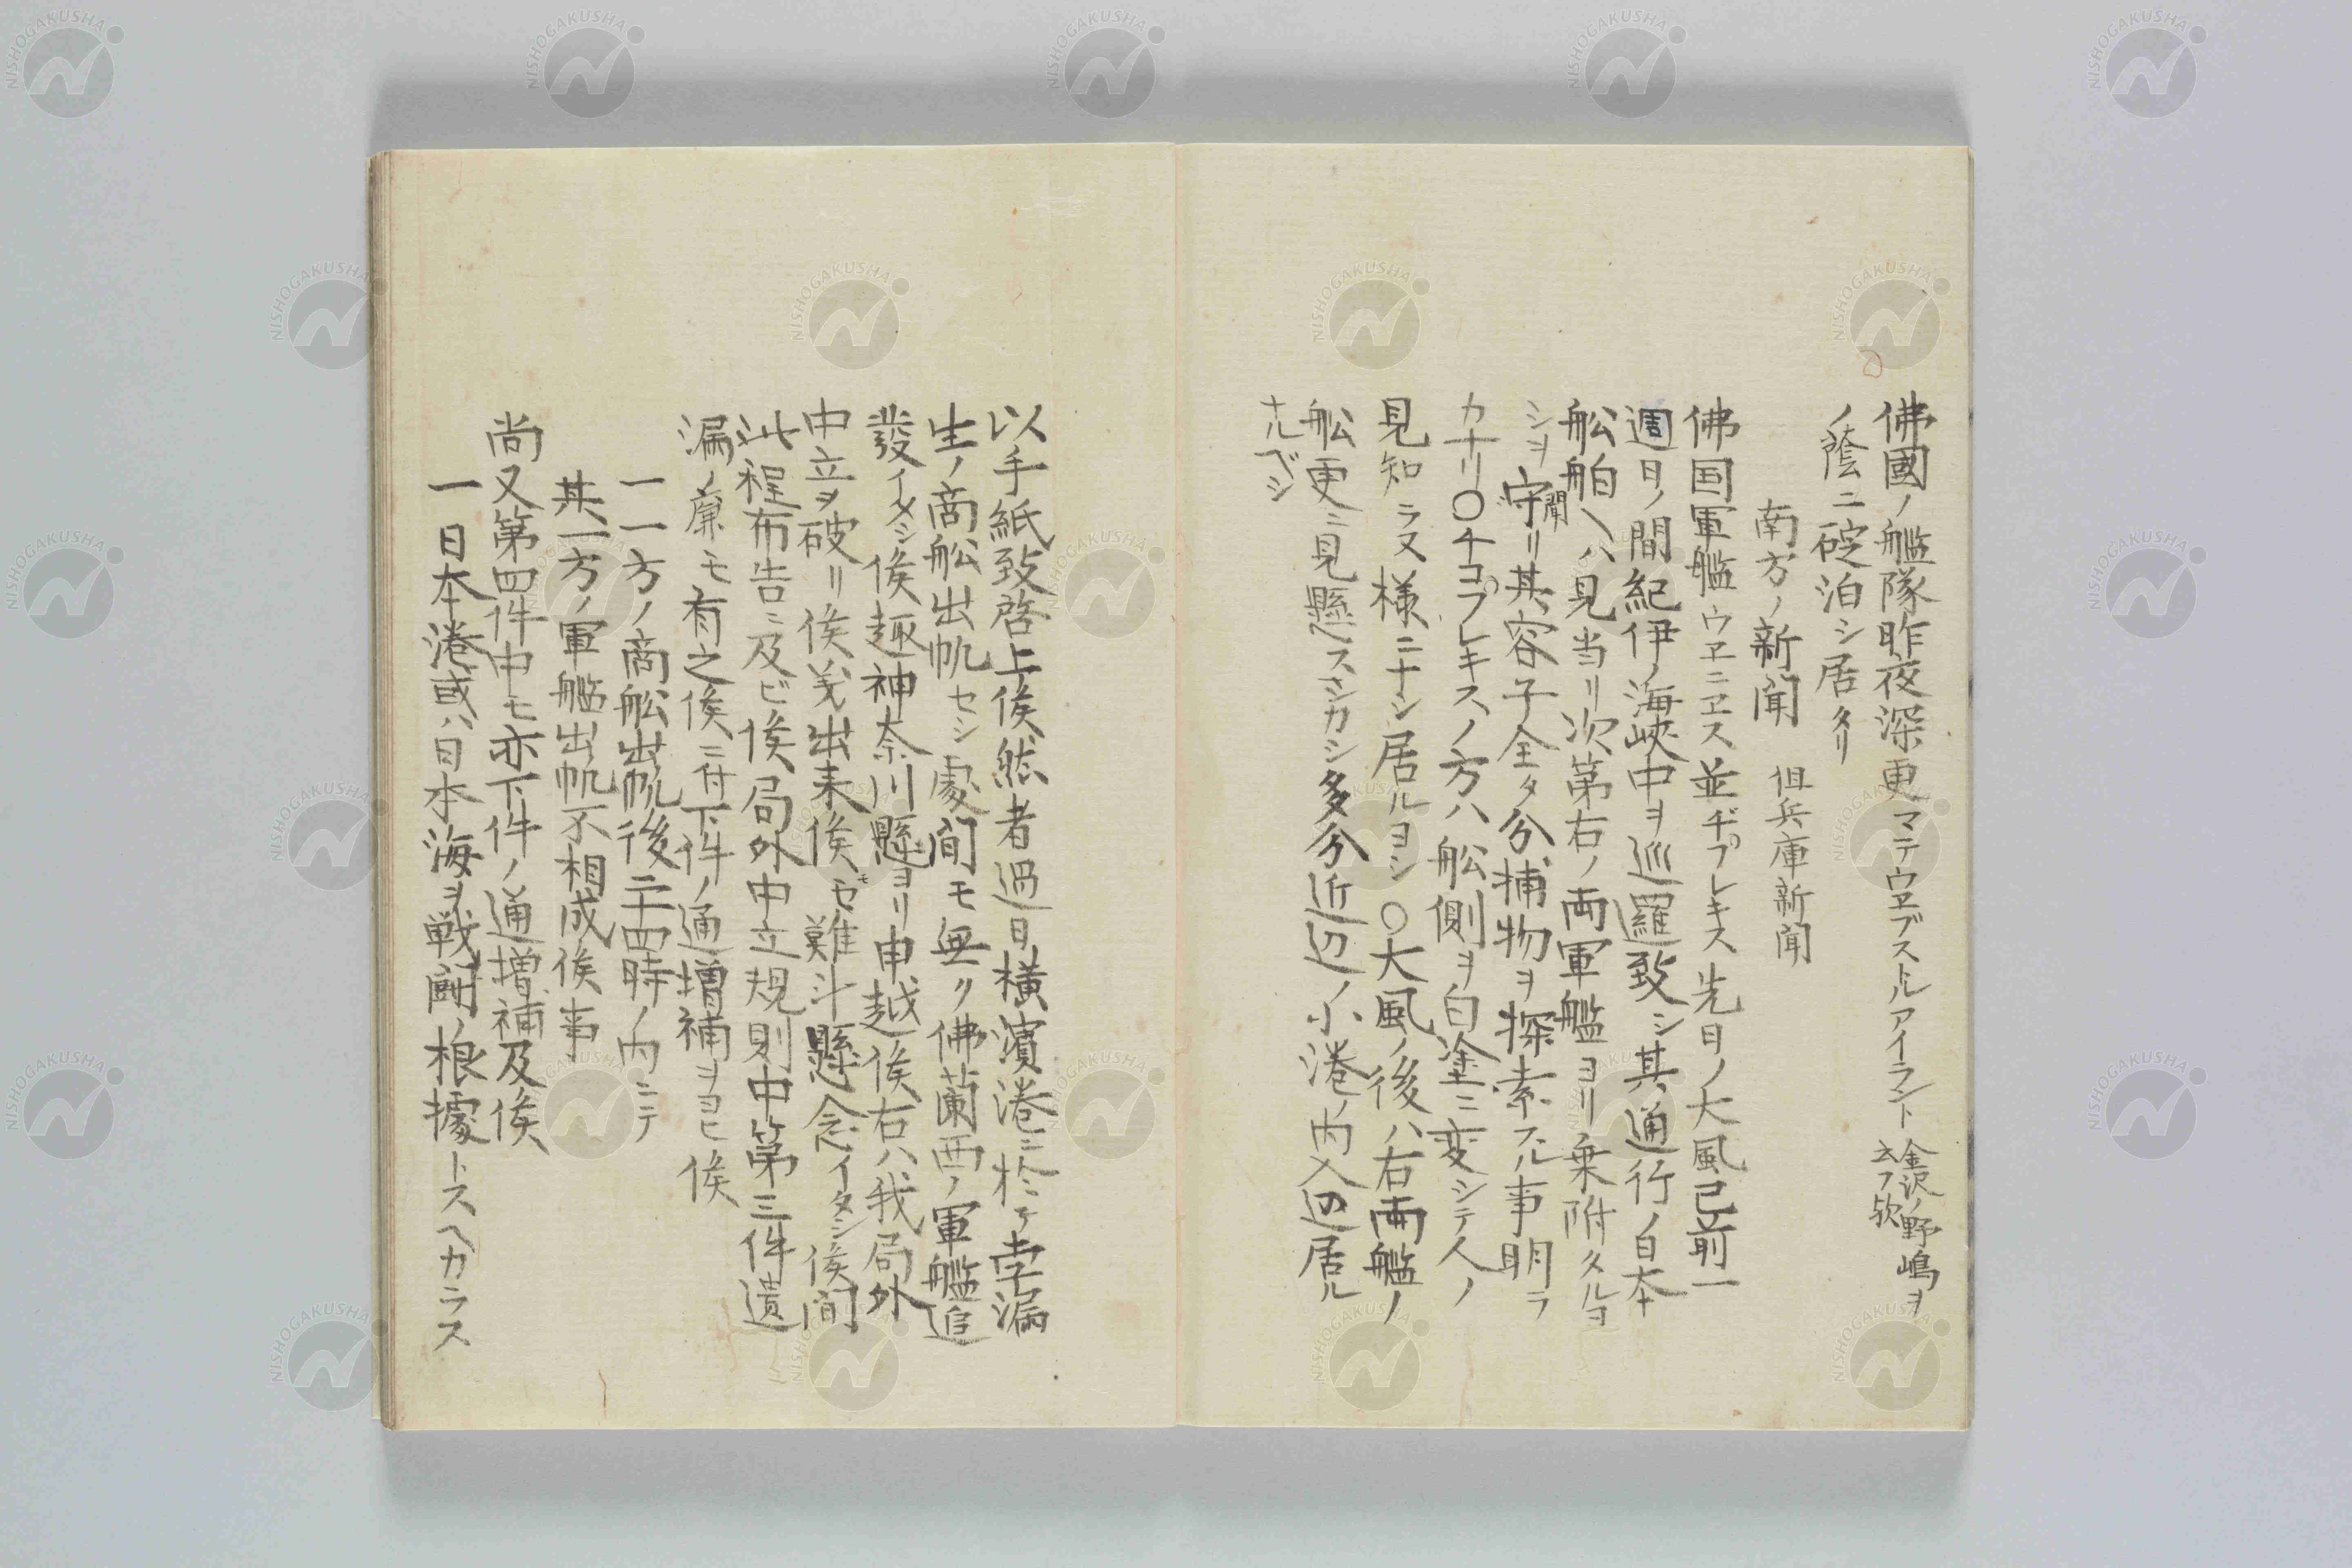 佛國ノ艦隊昨夜深更マテウヱブストルアイラント金沢ノ野嶋ヲ云フ欤
ノ蔭ニ碇泊シ居タリ
南方ノ新聞 但兵庫新聞
佛国軍艦ウヱニヱス並ヂプレキス先日ノ大風已前一
週日ノ間紀伊ノ海峽中ヲ巡羅致シ其通行ノ日本
舩舶ヘハ見当リ次第右ノ両軍艦ヨリ乗附タルヨ
シヲ守聞リ其容子全タ分捕物ヲ探索スル事明ラ
カナリ〇チコプレキスノ方ハ舩側ヲ白塗ニ変シテ人ノ
見知ラヌ様ニナシ居ルヨシ〇大風ノ後ハ右両艦ノ
舩更ニ見懸スシカシ多分近辺ノ小港内入辺居ル
ナルベシ
以手紙致啓上候然者過日横濱港ニ於テ孛漏
生ノ商舩出帆セシ處間モ無ク佛蘭西ノ軍艦追
發イタシ候趣神奈川縣ヨリ申越候右ハ我局外
中立ヲ破リ候義出来候モ難斗懸念イタシ候間
此程布告ニ及ビ候局外中立規則中第三件遺
漏ノ廉モ有之候ニ付下件ノ通増補ヲヨヒ候
一一方ノ商舩出帆後二十四時ノ内ニテ
其一方ノ軍艦出帆不相成候事
尚又第四件中モ亦下件ノ通増補及候
一日本港或ハ日本海ヲ戦闘ノ根據トスヘカラス
NISHOGAKUSHA